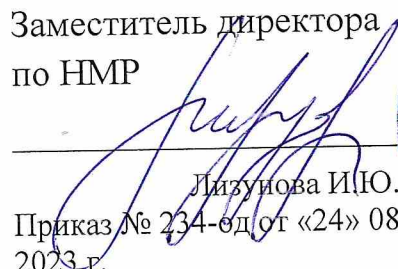 Заместитель директора
по НМР
Лизунова И.Ю.
Приказ № 234-од от «24» 08
2023 г.